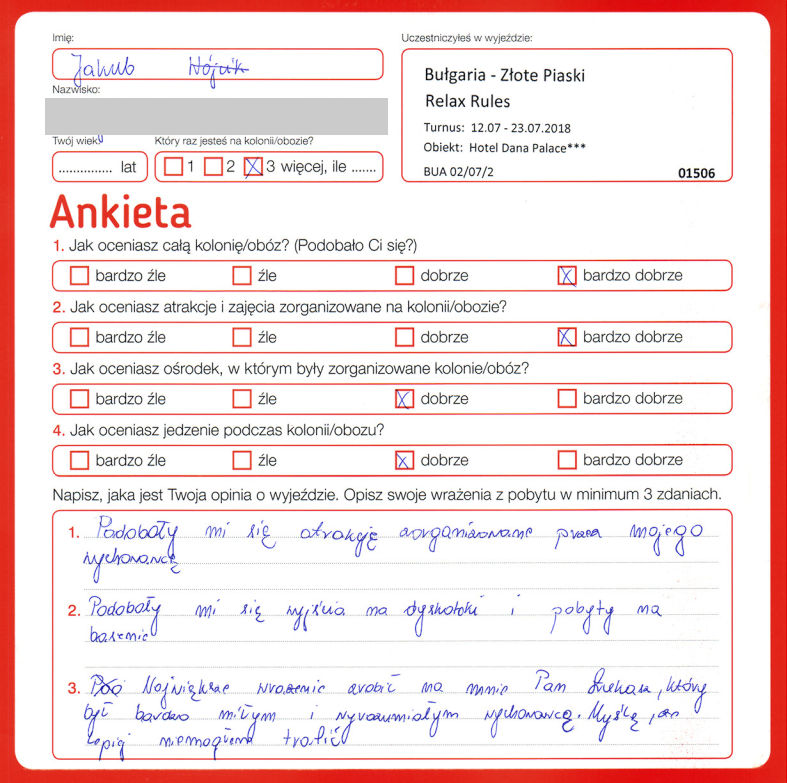 Imię:
Jakub Wójcik
Nazwisko:
Twój wiek:
............... lat
Który raz jesteś na kolonii/obozie?
1 2 3 więcej, ile .......
Uczestniczyłeś w wyjeździe:
Bułgaria - Złote Piaski
Relax Rules
Turnus: 12.07 - 23.07.2018
Obiekt: Hotel Dana Palace***
BUA 02/07/2 01506
Ankieta
1. Jak oceniasz całą kolonię/obóz? (Podobało Ci się?)
bardzo źle źle dobrze bardzo dobrze
2. Jak oceniasz atrakcje i zajęcia zorganizowane na kolonii/obozie?
bardzo źle źle dobrze bardzo dobrze
3. Jak oceniasz ośrodek, w którym były zorganizowane kolonie/obóz?
bardzo źle źle dobrze bardzo dobrze
4. Jak oceniasz jedzenie podczas kolonii/obozu?
bardzo źle źle dobrze bardzo dobrze
Napisz, jaka jest Twoja opinia o wyjeździe. Opisz swoje wrażenia z pobytu w minimum 3 zdaniach.
1. Podobały mi się atrakcję zorganizowane przez mojego
wychowawcę
2. Podobały mi się wyjścia na dyskoteki i pobyty na
basenie
3. Największe wrażenie zrobił na mnie Pan, który
był bardzo miłym i wyrozumiałym wychowawcą. Myślę, że
lepiej niemogłem trafić